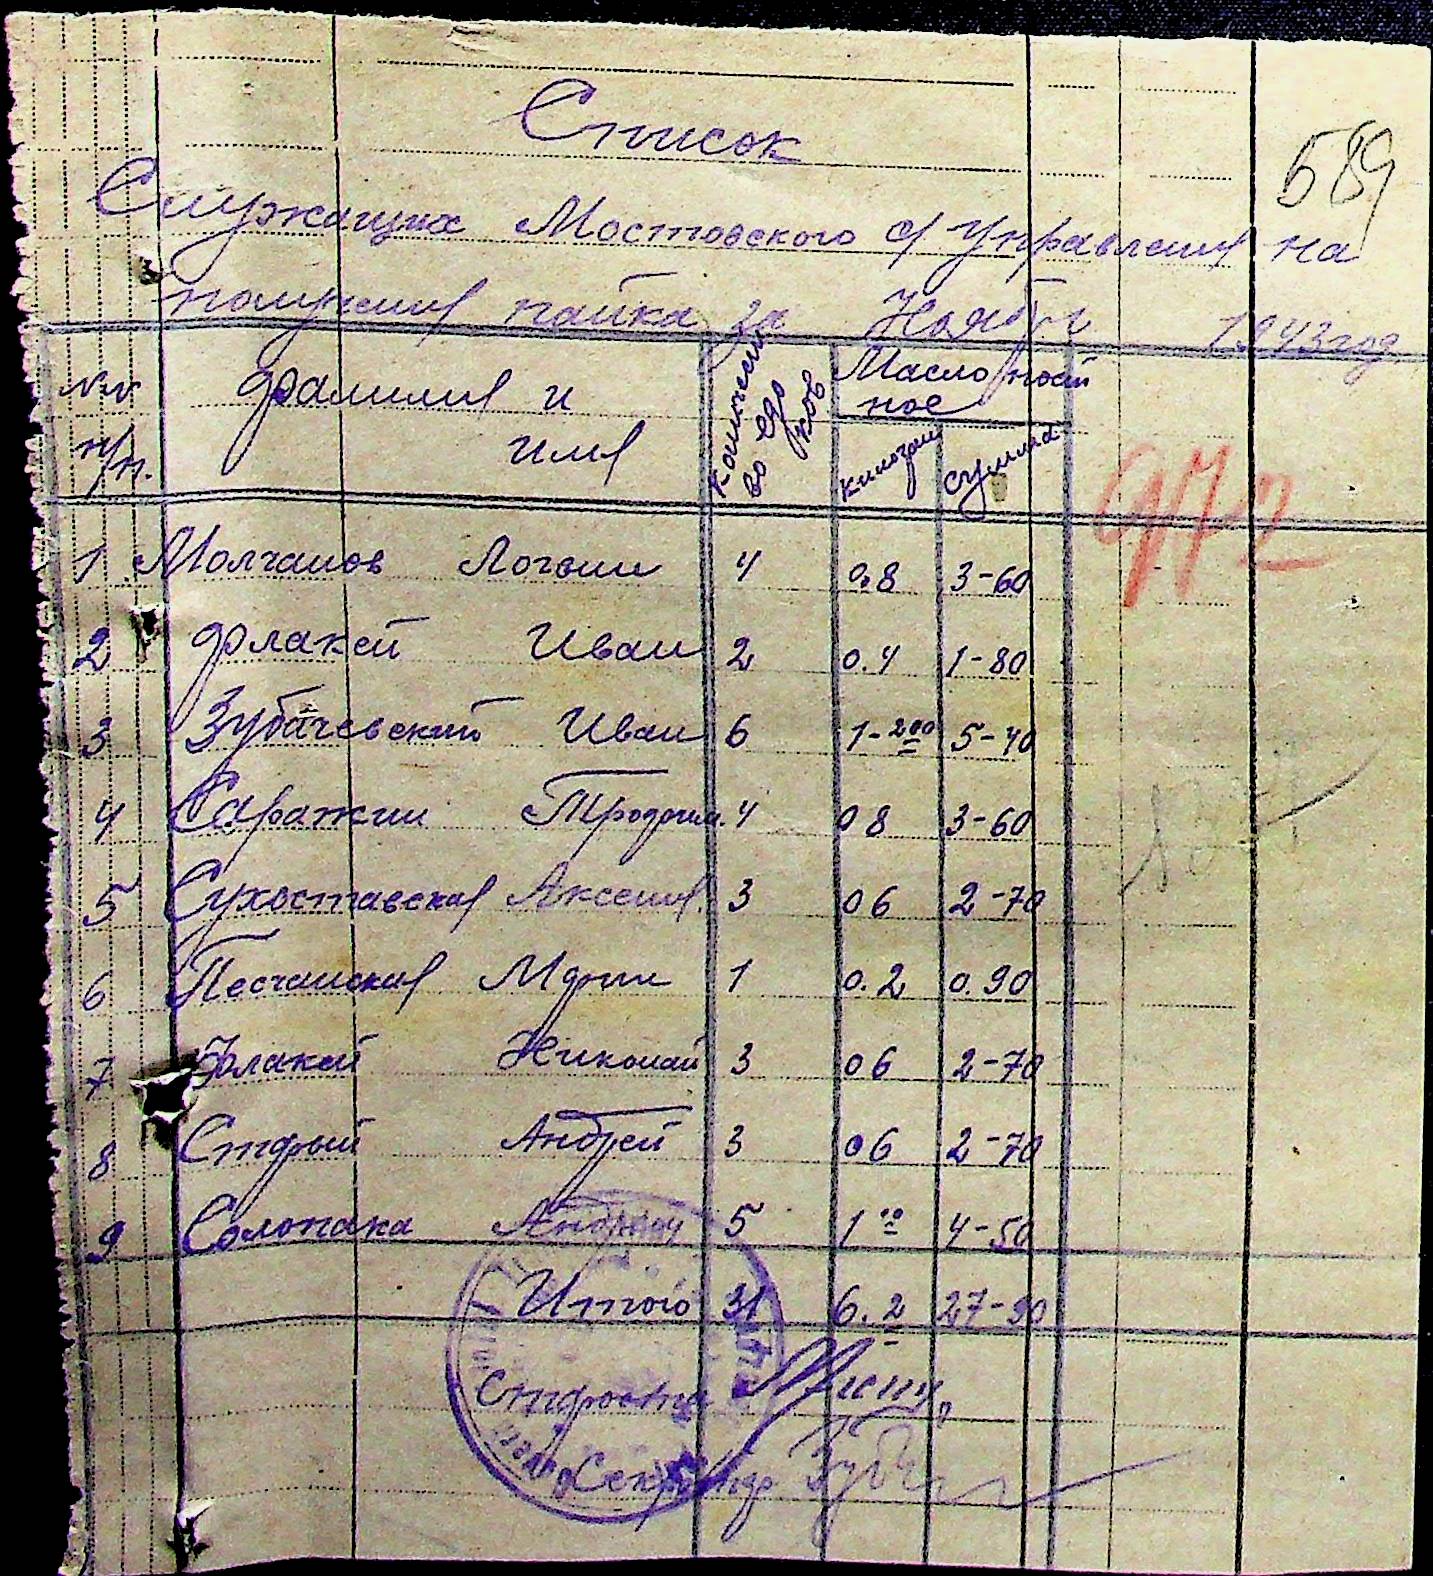 Список
589
Служащих Мостовского с/Управления на
получения пайка за Ноябрь 1943 год
№№ п/п. фамилия и имя количество едоков Масло постное килограм сумма
972
1 Молчанов Логвин 4 0.8 3-60
2 Флакей Иван 2 0.4 1-80
3 Зубачевский Иван 6 1-200 5-40
4 Саражин Трофим. 4 0 8 3-60
5 Сухоставская Аксения. 3 0 6 2-70
6 Песчанская 1 0.2 0.90
7 Флакей Николай 3 0 6 2-70
8 Старый Андрей 3 0 6 2-70
9 Солопака Андрей 5 1 00 4-50
Итого 31 6.2 27-90
Староста
Секретар